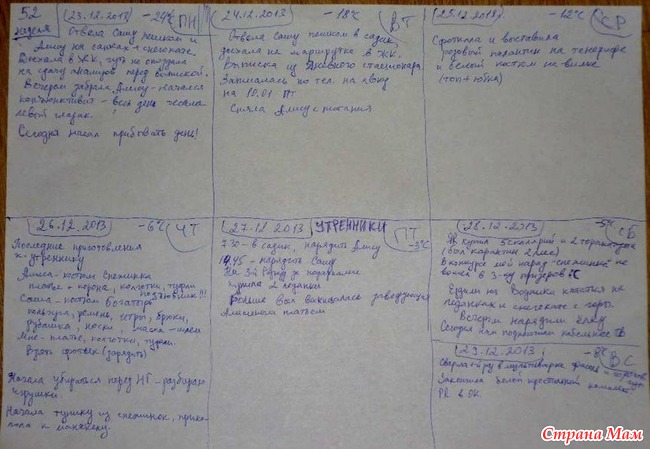 52
неделя
23.12.2013
-24°
ПН
Отвела Сашу пешком и
Алису на санках и снегокате.
Доехала в ЖК, чуть не опоздала
на сдачу анализов перед выпиской.
Вечером забрала Алису - начался
конъюнктивит - весь день чесала
левый глазик.
Сегодня начал прибывать день!
24.12.2013
-18°
ВТ
Отвела Сашу пешком в садик,
доехала на маршрутке в ЖК.
Выписка из дневного стационара.
по тел. на
на 10.01 ПТ
Сняла Алису с питания
25.12.2013
-12°С
СР
и выставила
розовый палантин на
и белой костюм на
(топ+юбка)
26.12.2013
-6°С
ЧТ
Последние приготовления
к утреннику
Алиса - костюм снежинка
платье + корона, колготки, туфли
Саша - костюм богатыря
ремень, брюки,
рубашка, носки, маска-шлем
Мне - платье, колготки, туфли.
Взять фотик (зарядить)
Начала убираться перед НГ - разбираю
игрушки
Начала тушку из снежинок,
к манекену.
27.12.2013
УТРЕННИКИ
ПТ
-3°С
7.30 - в садик, нарядить Алису
нарядить Сашу
За 3й Ряд за подарками
купила 2 ледянки
Больше всех восхищалась заведующая
Алисиным платьем
28.12.2013
-5°С
СБ
купил 5 скалярий и 2
(был карантин 2 мес)
В конкурсе мой наряд "снежинка" не
вошел в 3-ку призеров
Ездили на Водники кататься на
ледянках и снегокате с горы.
Вечером нарядили ёлку
Сегодня нам подключили кабельное ТВ
29.12.2013
-8°С
ВС
Закончила белой крестильной
в ОК.
Страна Мам